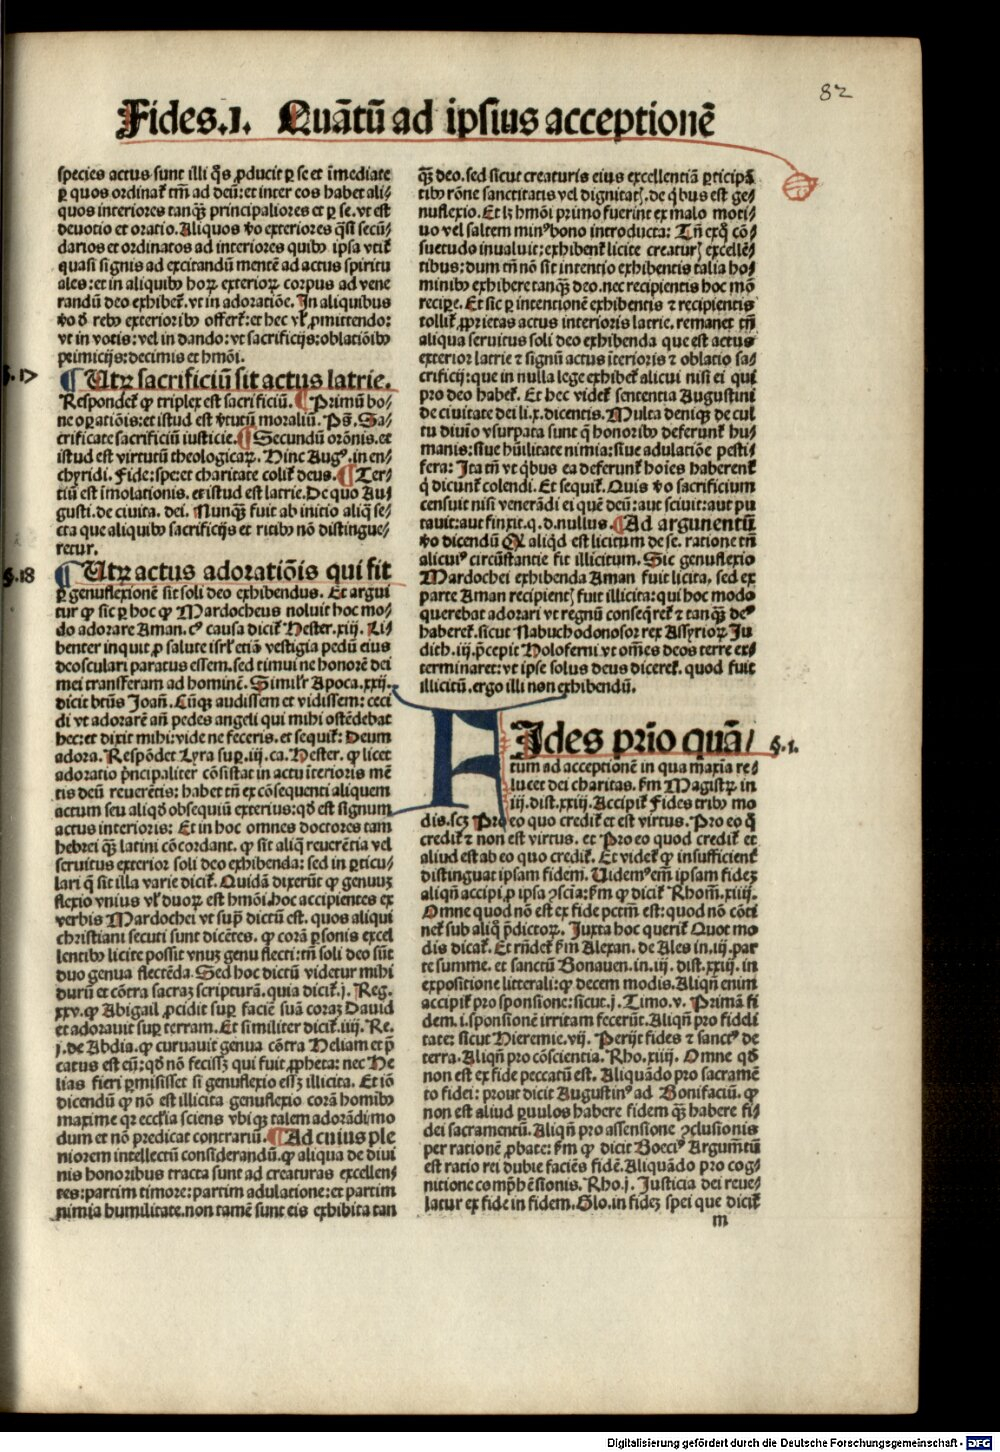 82
Fides.1. Quātū ad ipsius acceptionē
species actus sunt illi q̄s ꝓducit ꝑ se et īmediate
ꝑ quos ordinat᷑ tm̄ ad deū: et inter eos habet ali/
quos interiores tanq̄ꝫ principaliores et ꝑ se. vt est
deuotio et oratio. Aliquos v̊o exteriores q̄si secū/
darios et ordinatos ad interiores quibꝰ ipsa vtit᷑
quasi signis ad excitandū mentē ad actus spiritu
ales: et in aliquibꝰ hoꝝ exterioꝝ corpus ad vene
randū deo exhibet᷑. vt in adoratiōe. In aliquibus
v̊o ð rebꝰ exterioribꝰ offert᷑: et hec vł ꝓmittendo:
vt in votis: vel in dando: vt sacrificijs: oblatiōibꝰ
primicijs: decimis et hmōi.
§.17
¶ Utꝝ sacrificiū sit actus latrie.
Respondet᷑ ꝙ triplex est sacrificiū. ¶ Primū bo/
ne oꝑatiōis: et istud est v̓tutū moraliū. Ps̄. Sa/
crificate sacrificiū iusticie. ¶ Secundū orōnis. et
istud est virtutū theologicaꝝ. Hinc Augꝰ. in en/
chyridi. Fide: spe: et charitate colit᷑ deus. ¶ Ter/
tiū est īmolationis. et istud est latrie. De quo Au/
gusti. de ciuita. dei. Nunq̄ꝫ fuit ab initio aliq̄ se/
cta que aliquibꝰ sacrificijs et ritibꝰ nō distingue/
retur.
§.18
¶ Utꝝ actus adoratiōis qui fit
ꝑ genuflexionē sit soli deo exhibendus. Et argui
tur ꝙ sic ꝑ hoc ꝙ Mardocheus noluit hoc mo/
do adorare Aman. cꝰ causa dicit᷑ Hester. xiij. Li/
benter inquit ꝓ salute isrl̓ etiā vestigia pedū eius
deosculari paratus essem. sed timui ne honorē dei
mei transferam ad hominē. Simil̓r Apoca. xxij.
dicit btūs Joan̄. Cūqꝫ audissem et vidissem: ceci
di vt adorarē an̄ pedes angeli qui mihi ostēdebat
hec: et dixit mihi: vide ne feceris. et sequit᷑: Deum
adora. Respōdet Lyra suꝑ. iij. ca. Hester. ꝙ licet
adoratio p̓ncipaliter cōsistat in actu īterioris mē
tis deū reuerētis: habet tn̄ ex cōsequenti aliquem
actum seu aliqð obsequiū exterius: qð est signum
actus interioris: Et in hoc omnes doctores tam
hebrei q̄ꝫ latini cōcordant. ꝙ sit aliq̄ reuerētia vel
seruitus exterior soli deo exhibenda: sed in ꝑticu/
lari q̄ sit illa varie dicit᷑. Quidā dixerūt ꝙ genuꝫ
flexio vnius vł duoꝝ est hmōi. hoc accipientes ex
verbis Mardochei vt supͣ dictū est. quos aliqui
christiani secuti sunt dicētes. ꝙ corā ꝑsonis excel
lentibꝰ licite possit vnuꝫ genu flecti: tn̄ soli deo sūt
duo genua flectēda. Sed hoc dictū videtur mihi
durū et cōtra sacraꝫ scripturā. quia dicit᷑. j. Reg.
xxv. ꝙ Abigail ꝓcidit suꝑ faciē suā coraꝫ Dauid
et adorauit suꝑ terram. Et similiter dicit᷑. iiij. Re.
j. de Abdia. ꝙ curuauit genua cōtra Heliam et p̄
catus est eū: qð nō fecissꝫ qui fuit ꝓpheta: nec He
lias fieri ꝑmisisset si genuflexio essꝫ illicita. Et iō
dicendū ꝙ nō est illicita genuflexio corā homibꝰ
maxime qꝛ eccl̓ia sciens vbiqꝫ talem adorādi mo
dum et nō predicat contrariū. ¶ Ad cuius ple
niorem intellectū considerandū. ꝙ aliqua de diui
nis honoribus tracta sunt ad creaturas excellen/
tes: partim timore: partim adulatione: et partim
nimia humilitate. non tamē sunt eis exhibita tan
q̄ꝫ deo. sed sicut creaturis eius excellentiā ꝑticipā
tibꝰ rōne sanctitatis vel dignitatꝭ. de q̓bus est ge/
nuflexio. Et lꝫ hmōi primo fuerint ex malo moti/
uo vel saltem minꝰ bono introducta: Tn̄ exq̄ cō/
suetudo inualuit: exhibent᷑ licite creaturꝭ excellē/
tibus: dum tn̄ nō sit intentio exhibentis talia ho/
minibꝰ exhibere tanq̄ꝫ deo. nec recipientis hoc mō
reciꝑe. Et sic ꝑ intentionē exhibentis ⁊ recipientis
tollit᷑ ꝓprietas actus interioris latrie. remanet tn̄
aliqua seruitus soli deo exhibenda que est actus
exterior latrie ⁊ signū actus īterioris ⁊ oblatio sa/
crificij: que in nulla lege exhibet᷑ alicui nisi ei qui
pro deo habet᷑. Et hec videt᷑ sententia Augustini
de ciuitate dei li. x. dicentis. Multa deniqꝫ de cul
tu diuīo vsurpata sunt q̄ honoribꝰ deferunt᷑ hu/
manis: siue hūilitate nimia: siue adulatiōe pesti/
fera: Ita tn̄ vt q̓bus ea deferunt᷑ hoīes haberent᷑
q̓ dicunt᷑ colendi. Et sequit᷑. Quis v̊o sacrificium
censuit nisi venerādi ei quē deū: aut sciuit: aut pu
tauit: aut finxit. q. d. nullus. ¶ Ad argumentū
v̊o dicendū Q aliq̓d est licitum de se. ratione tn̄
alicuiꝰ circūstantie fit illicitum. Sic genuflexio
Mardochei exhibenda Aman fuit licita, sed ex
parte Aman recipientꝭ fuit illicita: qui hoc modo
querebat adorari vt regnū conseq̄ret᷑ ⁊ tanq̄ꝫ deꝰ
haberet᷑. sicut Nabuchodonosor rex Assyrioꝝ Ju
dith. iij. p̄cepit Holoferni vt om̄es deos terre ex/
terminaret: vt ipse solus deus diceret᷑. quod fuit
illicitū. ergo illi non exhibendū.
FIdes prīo quā/
§.1.
tum ad acceptionē in qua maxīa re/
lucet dei charitas. s̄m Magistꝝ in
iij. dist. xxiij. Accipit᷑ Fides tribꝰ mo
dis. scꝫ Pro eo quo credit᷑ et est virtus. Pro eo q̊
credit᷑ ⁊ non est virtus. et Pro eo quod credit᷑ et
aliud est ab eo quo credit᷑. Et videt᷑ ꝙ insufficient᷑
distinguat ipsam fidem. Uidemꝰ em̄ ipsam fideꝫ
aliqn̄ accipi ꝓ ipsa ꝯscīa: s̄m ꝙ dicit᷑ Rhom̄. xiiij.
Omne quod nō est ex fide pctm̄ est: quod nō cōti
net᷑ sub aliq̊ p̄dictoꝝ. Juxta hoc querit᷑ Quot mo
dis dicat᷑. Et rn̄det᷑ s̄m Alexan. de Ales in. iij. par
te summe. et sanctū Bonauen. in. iij. dist. xxiij. in
expositione litterali: ꝙ decem modis. Aliqn̄ enim
accipit᷑ pro sponsione: sicut. j. Timo. v. Primā fi
dem. i. sponsionē irritam fecerūt. Aliqn̄ pro fideli
tate: sicut Hieremie. vij. Perijt fides ⁊ sanctꝰ de
terra. Aliqn̄ pro cōscientia. Rho. xiiij. Omne qð
non est ex fide peccatū est. Aliquādo pro sacramē
to fidei: prout dicit Augustinꝰ ad Bonifaciū. ꝙ
non est aliud ꝑuulos habere fidem q̄ꝫ habere fi/
dei sacramentū. Aliqn̄ pro assensione ꝯclusionis
per rationē ꝓbate: s̄m ꝙ dicit Boeciꝰ Argum̄tū
est ratio rei dubie faciēs fidē. Aliquādo pro cog/
nitione comp̄hēsionis. Rho. j. Justicia dei reue/
latur ex fide in fidem. Glo. in fideꝫ spei que dicit᷑
m
Digitalisierung gefördert durch die Deutsche Forschungsgemeinschaft - DFG